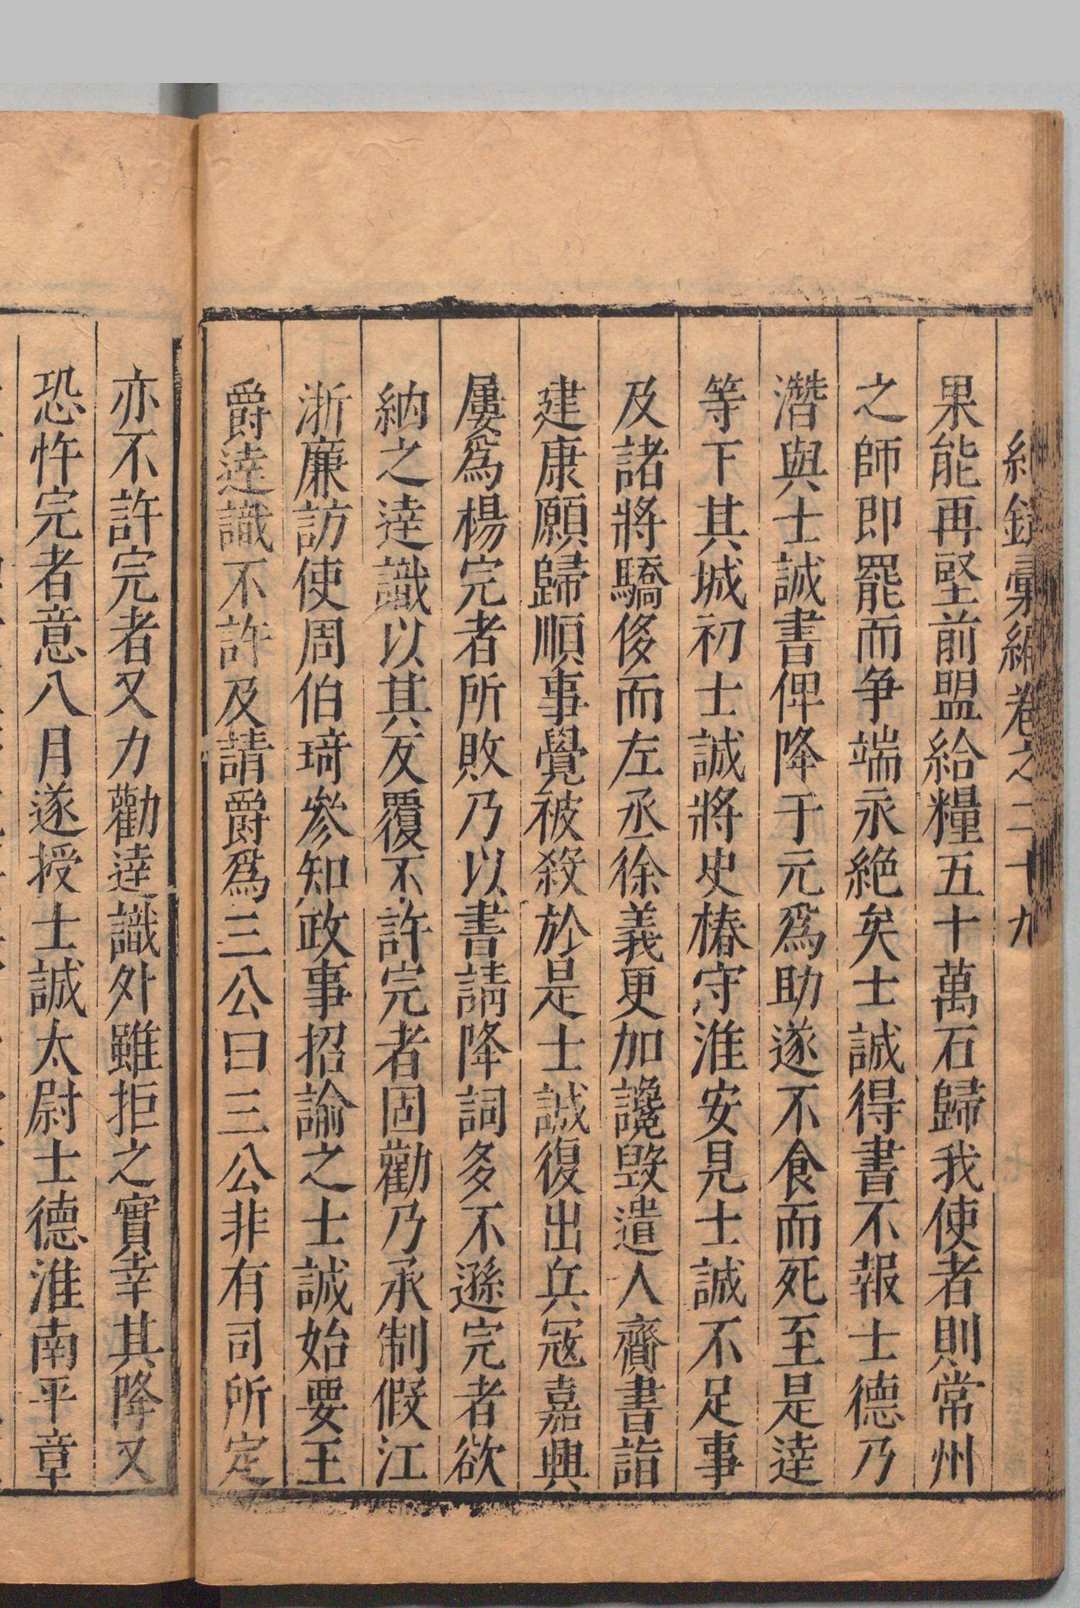 紀錄彙編卷之二十九
果能再堅前盟給糧五十萬石歸我使者則常州
之師即罷而爭端永絕矣士誠得書不報士德乃
潛與士誠書俾降于元爲助遂不食而死至是達
等下其城初士誠將史椿守淮安見士誠不足事
及諸將驕侈而左丞徐義更加讒毀遣人齎書詣
建康願歸順事覺被殺於是士誠復出兵寇嘉興
屢爲楊完者所敗乃以書請降詞多不遜完者欲
納之達識以其反覆不許完者固勸乃承制假江
浙廉訪使周伯琦參知政事招諭之士誠始要王
爵達識不許及請爵爲三公曰三公非有司所定
亦不許完者又力勸達識外雖拒之實幸其降又
恐忤完者意八月遂授士誠太尉士德淮南平章